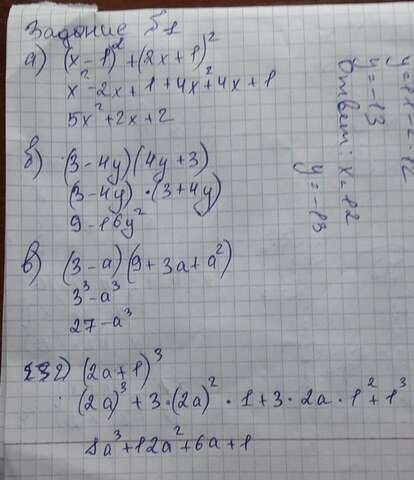 Задание Б1
а) (x-1)² + (2x+1)²
x² - 2x + 1 + 4x² + 4x + 1
5x² + 2x + 2
б) (3-4y)(4y+3)
(3-4y) · (3+4y)
9 - 16y²
в) (3-a)(9+3a+a²)
3³ - a³
27 - a³
г) (2a+1)³
(2a)³ + 3·(2a)² · 1 + 3 · 2a · 1² + 1³
8a³ + 12a² + 6a + 1
y = -13
Ответ: x = 12
y = -13